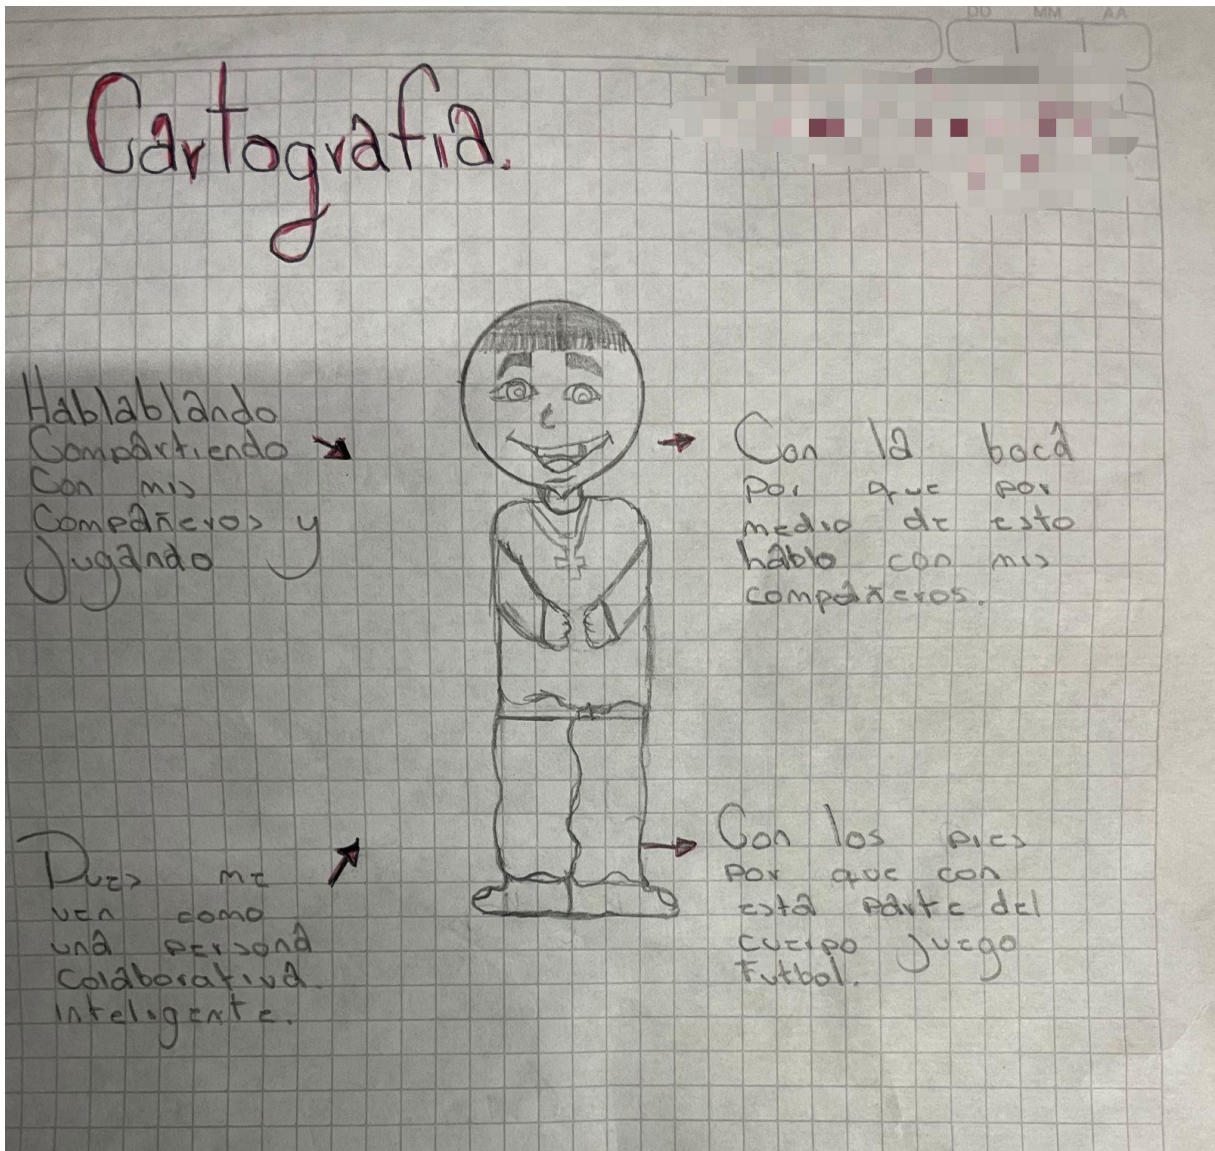 DD MM AA
Cartografia.
Hablablando
Compartiendo
Con mis
Compañeros y
Jugando
Con la boca
Por que por
medio de esto
hablo con mis
compañeros.
Pues me
ven como
una persona
Colaborativa.
inteligente.
Con los pies
Por que con
esta parte del
cuerpo juego
futbol.